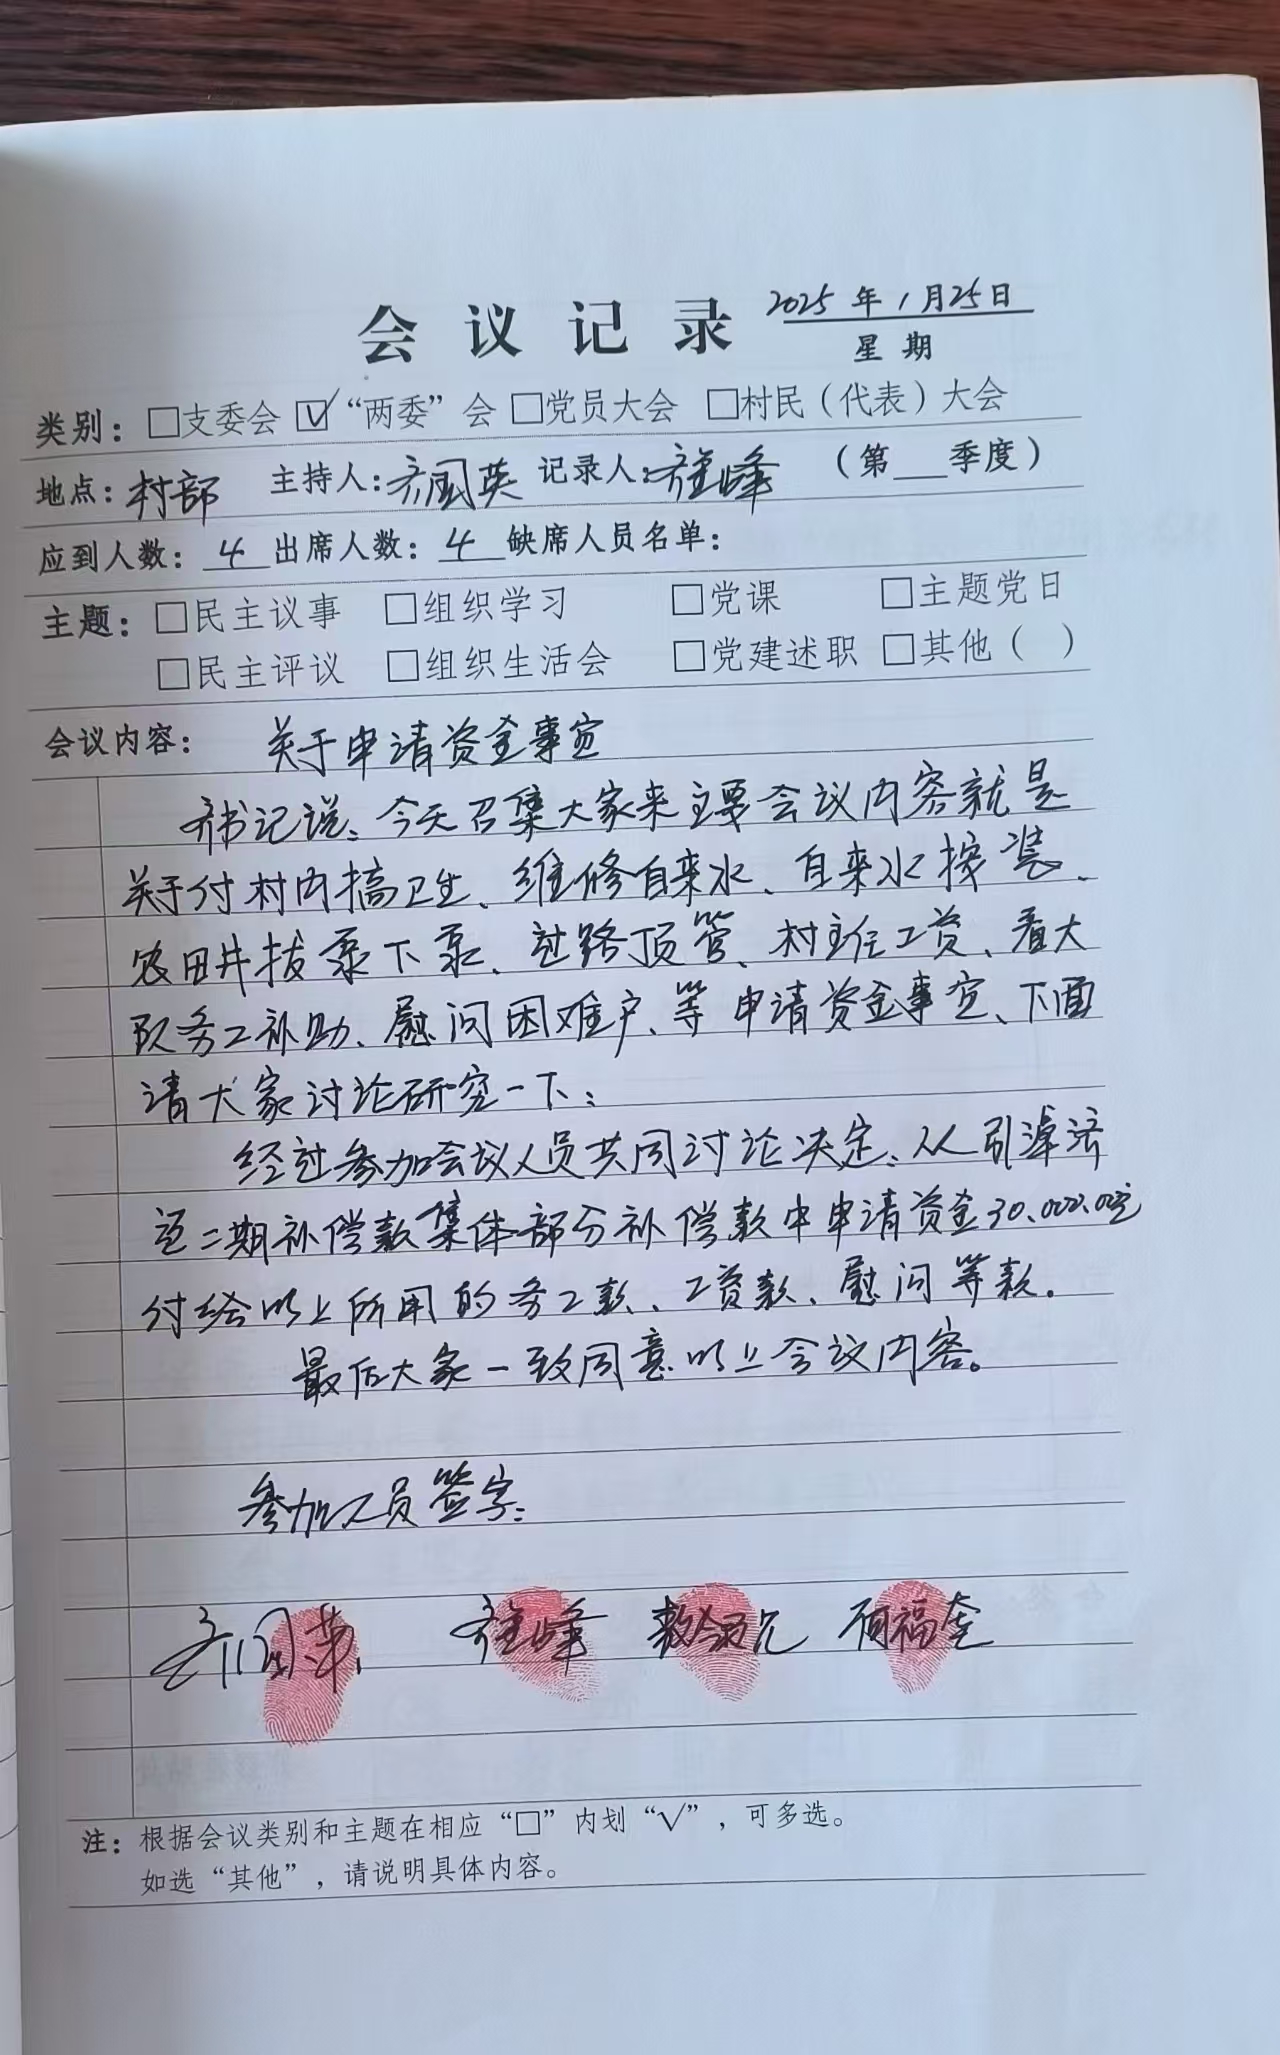 会议记录 2025年1月25日
星期
类别：□支委会 ☑“两委”会 □党员大会 □村民（代表）大会
地点：村部 主持人：齐国英 记录人：齐建峰 （第 季度）
应到人数：4 出席人数：4 缺席人员名单：
主题：□民主议事 □组织学习 □党课 □主题党日
□民主评议 □组织生活会 □党建述职 □其他（ ）
会议内容： 关于申请资金事宜
齐书记说：今天召集大家来主要会议内容就是
关于付村内搞卫生、维修自来水、自来水按装、
农田井拔泵下泵、过路顶管、村主任工资、看大
队务工补助、慰问困难户、等申请资金事宜、下面
请大家讨论研究一下：
经过参加会议人员共同讨论决定：从引滹济
二期补偿款集体部分补偿款中申请资金30,000.00元
付给以上所用的务工款、工资款、慰问等款.
最后大家一致同意以上会议内容。
参加人员签字：
齐国英 齐建峰 福奎
注：根据会议类别和主题在相应“□”内划“√”，可多选。
如选“其他”，请说明具体内容。